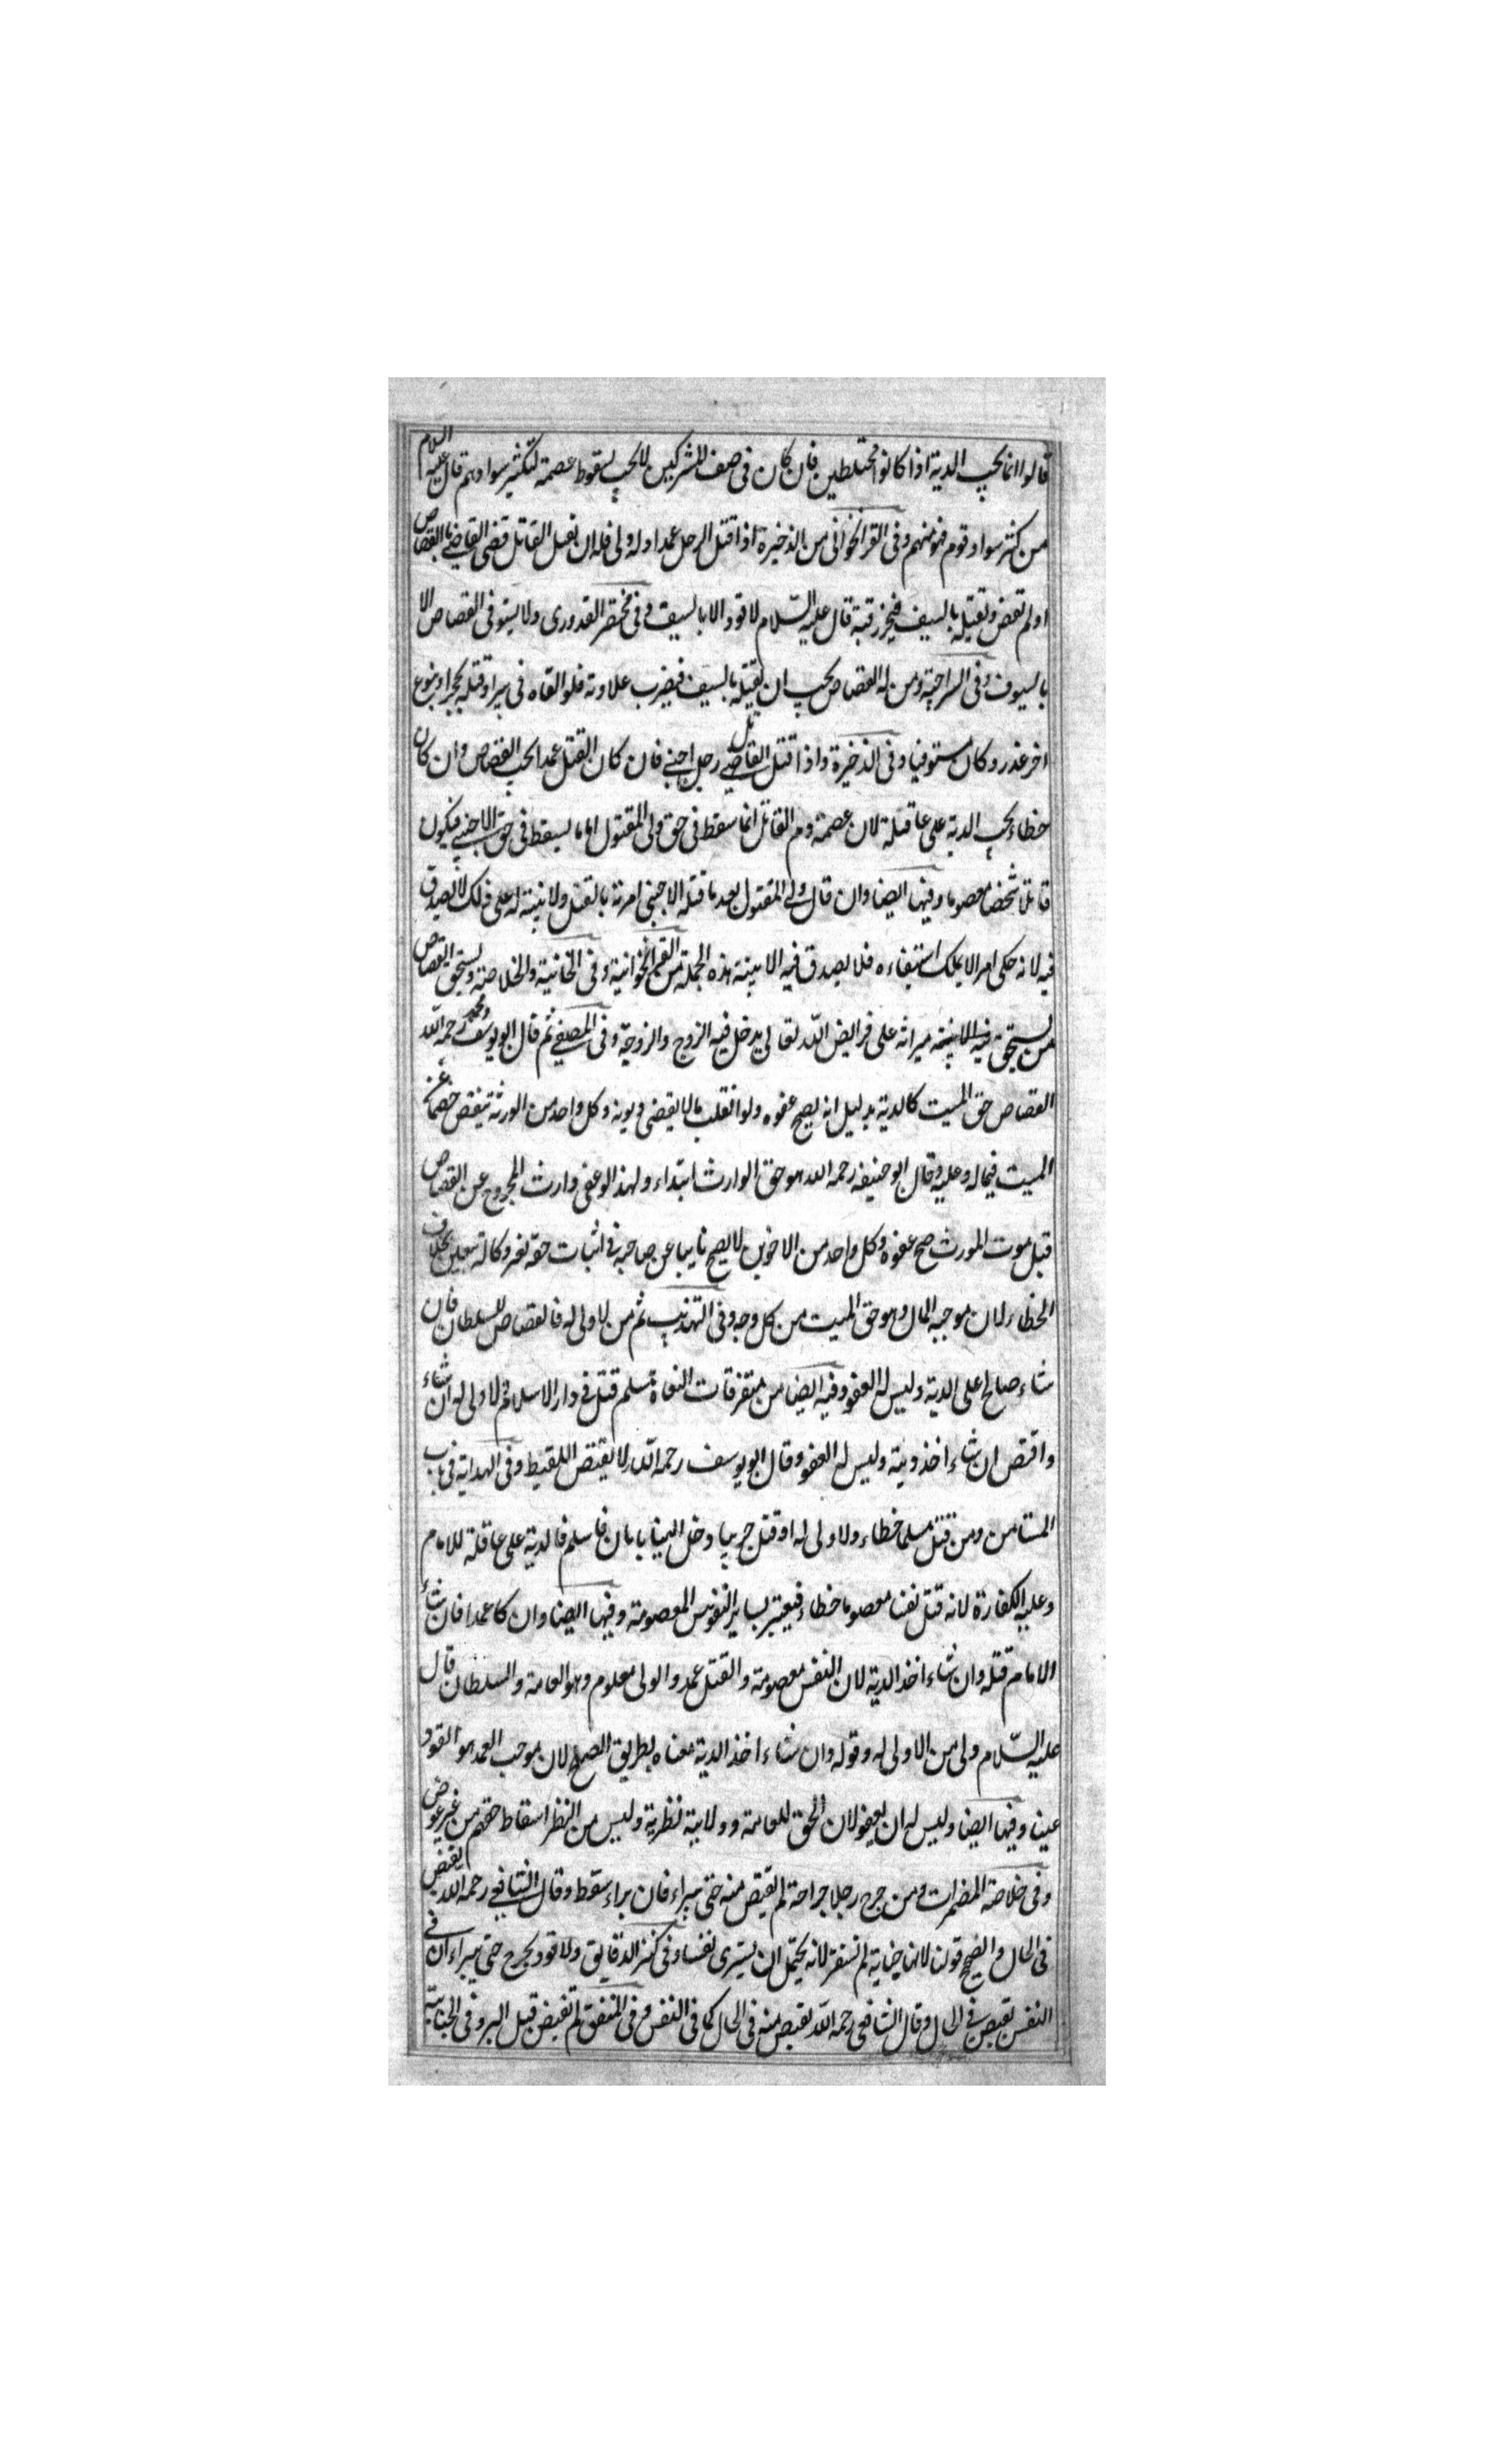 قالوا انما يجب الدية اذا كانوا مختلطين فان كان فى صف المشركين لا يجب لسقوط عصمة لتكثير سوادهم قال عليه السلام
من كثر سواد قوم فهو منهم وفى القراخوانى من الذخيرة اذا قتل الرجل عمدا وله ولى فله ان يقتل القاتل قضى القاضى بالقصاص
او لم يقض ويقتله بالسيف فيجز رقبته قال عليه السلام لا قود الا بالسيف وفى مختصر القدورى ولا يستوفى القصاص الا
بالسيوف وفى السراجية ومن له القصاص يجب ان يقتله بالسيف فيضرب علاوته فلو القاه فى بير او قتله بحجر او بنوع
اخر عذر وكان مستوفيا وفى الذخيرة واذا قتل القاتل رجل اجنبى فان كان القتل عمدا يجب القصاص وان كان
خطاء يجب الدية على عاقلة لان عصمة دم القاتل انما سقط فى حق ولى المقتول اما ما يسقط فى حق الاجنبى فيكون
قاتلا شخصا معصوما وفيها ايضا وان قال ولى المقتول بعد ما قتله الاجنبى امرته بالقتل ولا بينة له على ذلك لا يصدق
فيه لانه حكى امرا لا يملك استيفاءه فلا يصدق فيه الا ببينة هذه الجملة من القراخوانية وفى الخانية والخلاصة ويستحق القصاص
من يستحق ميراثه على فرايض الله تعالى يدخل فيه الزوج والزوجة وفى المصفى ثم قال ابو يوسف ومحمد رحمه الله
القصاص حق الميت كالدية بدليل انه يصح عفوه ولو انقلب مالا يقضى ديونه وكل واحد من الورثة ينتقض خصما عن
الميت فيما له وعليه وقال ابو حنيفة رحمه الله هو حق الوارث ابتداء ولهذا لو عفى وارث المجروح عن القصاص
قبل موت المورث صح عفوه وكل واحد من الاخوين لا يصح نايبا عن صاحبه فى اثبات حقه بغير وكالة بخلاف
الخطاء لان موجبه المال وهو حق الميت من كل وجه وفى التهذيب ثم من لا ولى له فالقصاص للسلطان فان
شاء صالح على الدية وليس له العفو وفيه ايضا من متفرقات مسلم قتل فى دار الاسلام ولا ولى له ان شاء
واقتص ان شاء اخذ دية وليس له العفو وقال ابو يوسف رحمه الله لا يقتص اللقيط وفى الهداية فى باب
المستامن ومن قتل مسلما خطاء ولا ولى له او قتل حربيا دخل الينا بامان فاسلم فالدية على عاقلة للامام
وعليه الكفارة لانه قتل نفسا معصوما خطاء فيعتبر بساير النفوس المعصومة وفيها ايضا وان كا عمدا فان شاء
الامام قتله وان شاء اخذ الدية لان النفس معصومة والقتل عمد والولى معلوم وهو العامة والسلطان قال
عليه السلام ولى من لا ولى له وقوله وان شاء اخذ الدية معناه بطريق الصلح لان موجب العمد هو القود
عينا وفيها ايضا وليس له ان يعفو لان الحق للعامة وولاية نظرية وليس من النظر اسقاط حقهم من غير عوض
وفى خلاصة المضمرات ومن جرح رجلا جراحة لم يقتص منه حتى يبراء فان براء سقوط وقال الشافعى رحمه الله يقتص
فى الحال والصحيح قولنا لانها جناية لم تستقر لانه يحتمل ان يسرى نفسا وفى كنز الدقايق ولا قود بجرح حتى يبراء ان فى
النفس يقتص فى الحال وقال الشافعى رحمه الله يقتص منه فى الحال كما فى النفس وفى المتفق لم تقتض قبل البر وفى الجناية